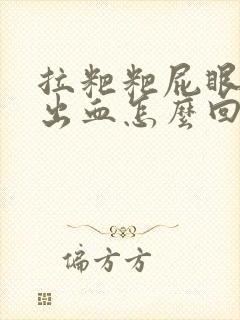 拉粑粑屁眼
出血怎麼回
偏方方